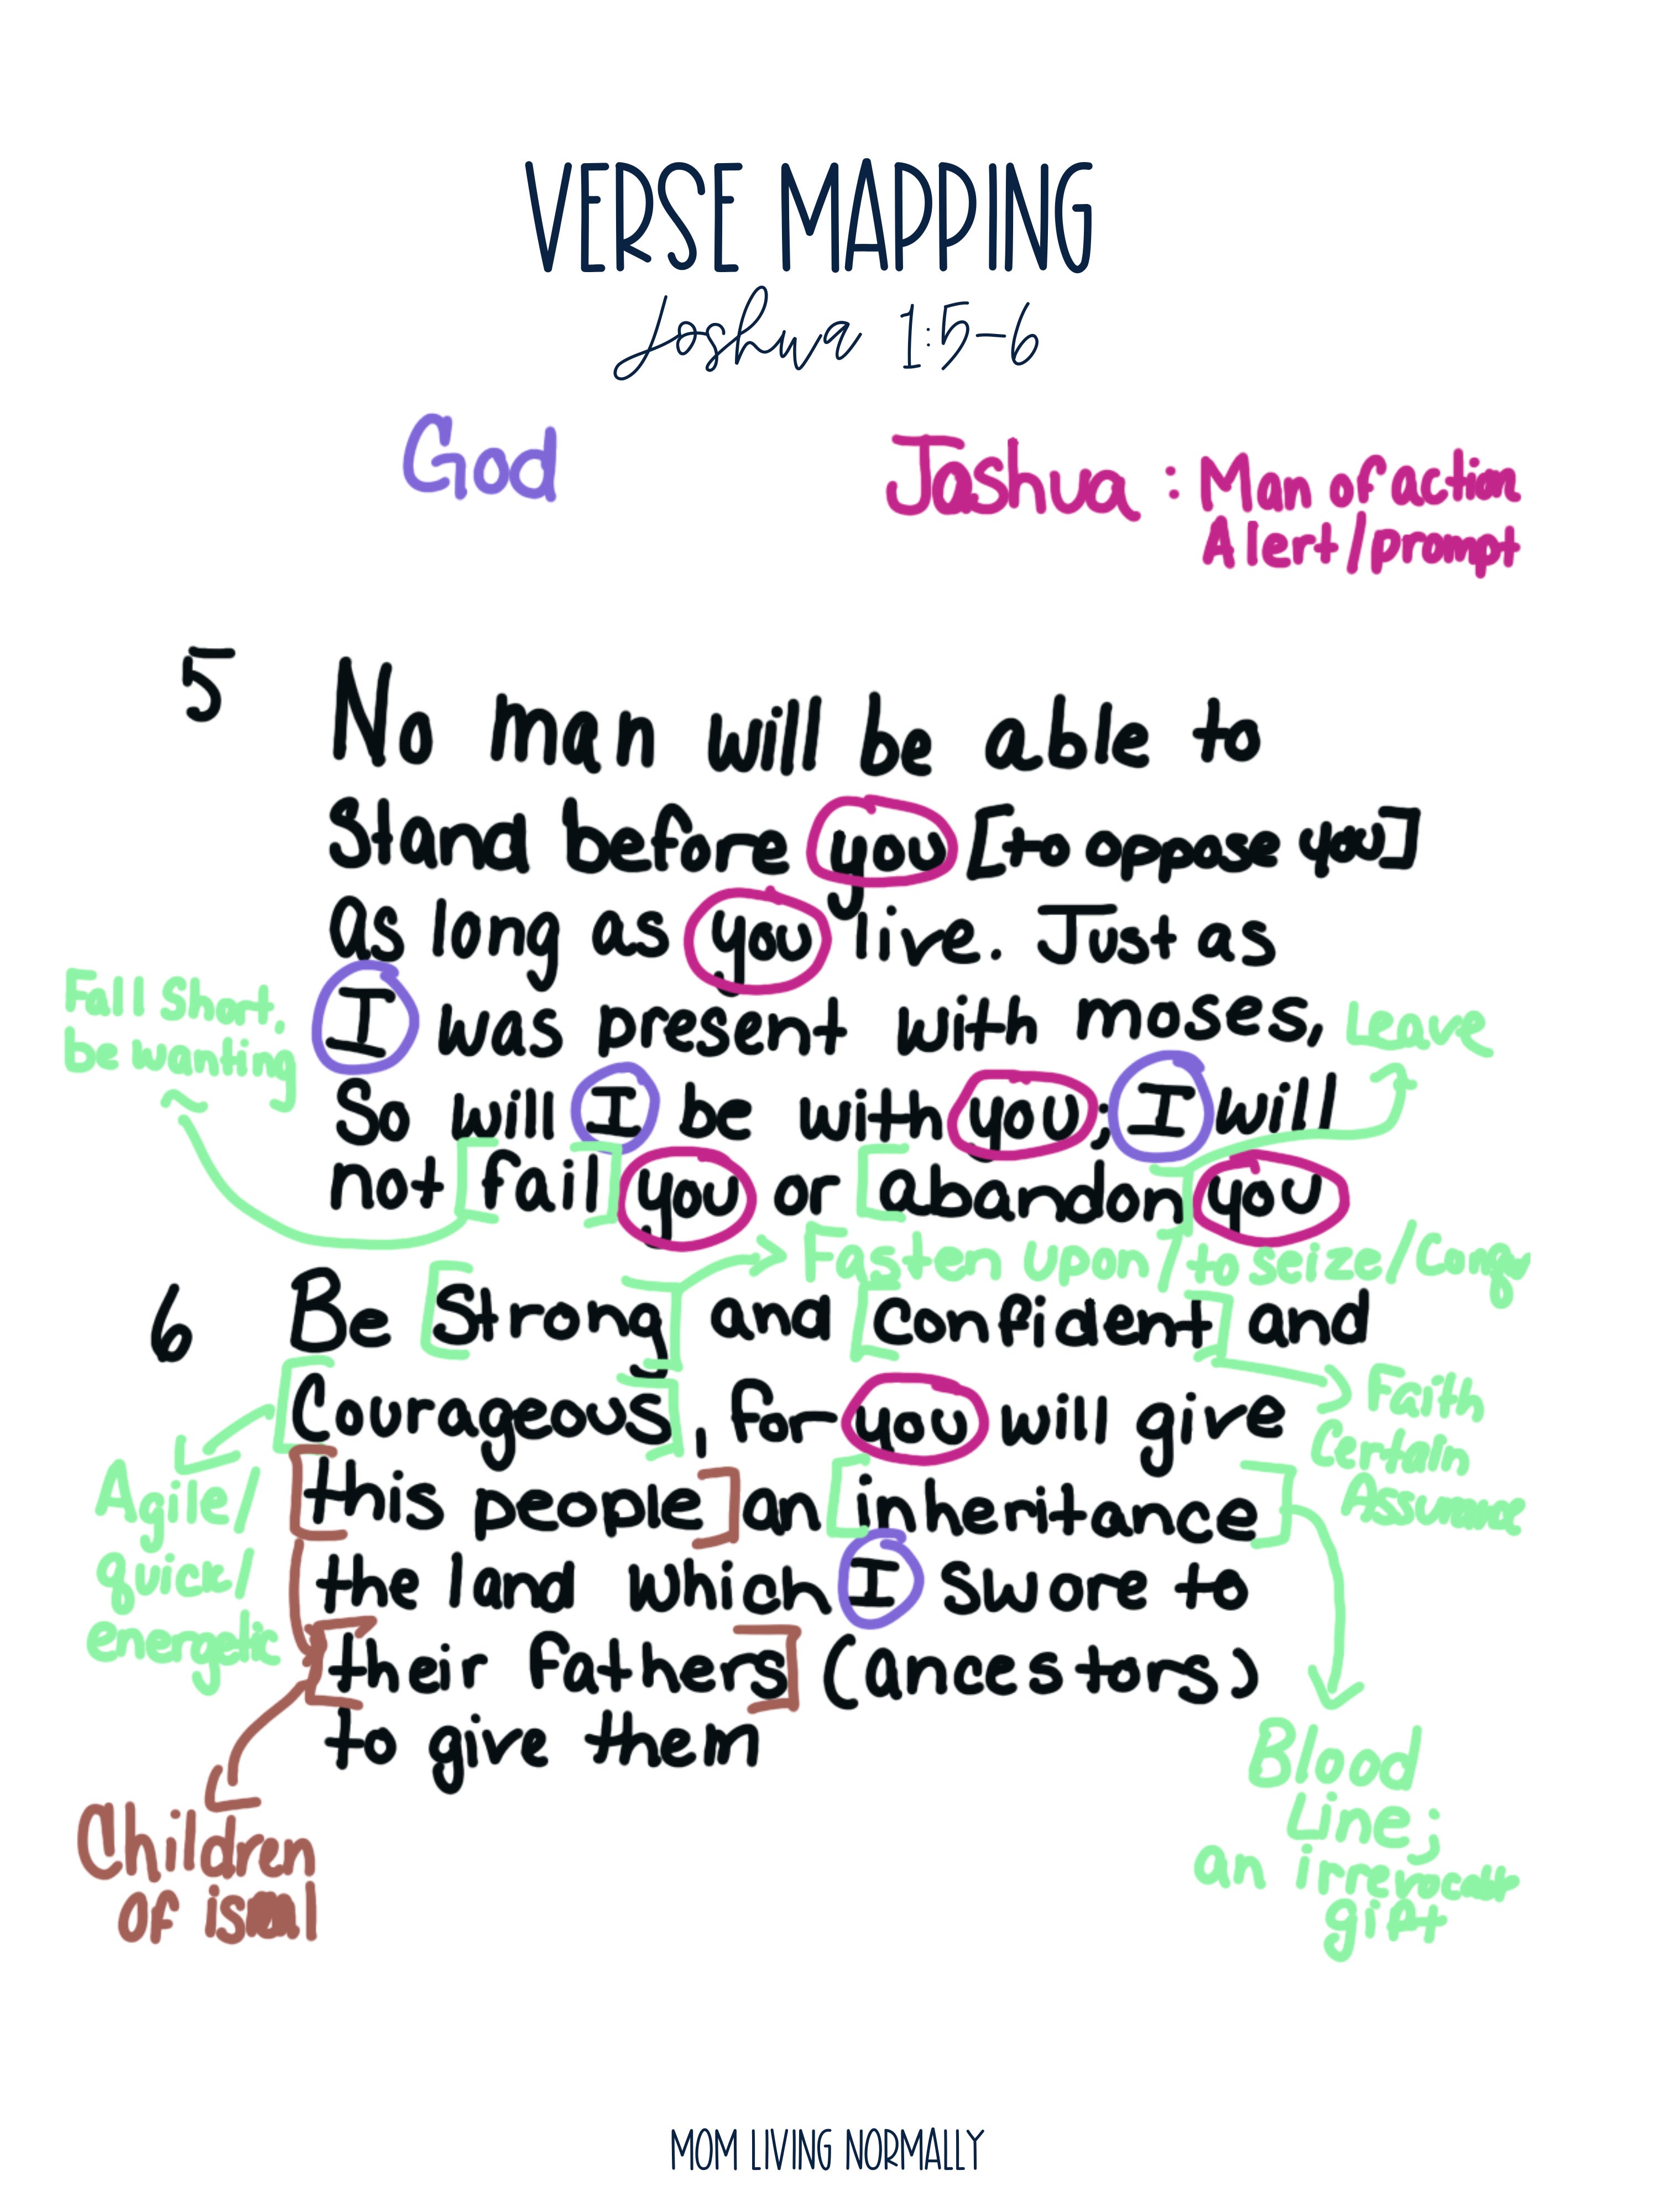 VERSE MAPPING
Joshua 1:5-6
God
Joshua : Man of action
Alert/prompt
5 No man will be able to
Stand before you [to oppose you]
as long as you live. Just as
Fall Short,
be wanting
I was present with moses,
Leave
So will I be with you; I will
not fail you or abandon you
Fasten upon / to seize/
6 Be Strong and Confident and
Courageous, for you will give
Faith
Certain
Assurance
this people an inheritance
Agile/
quick/
energetic
the land which I Swore to
their fathers (ancestors)
to give them
Blood
Line;
an
gift
Children
of
MOM LIVING NORMALLY